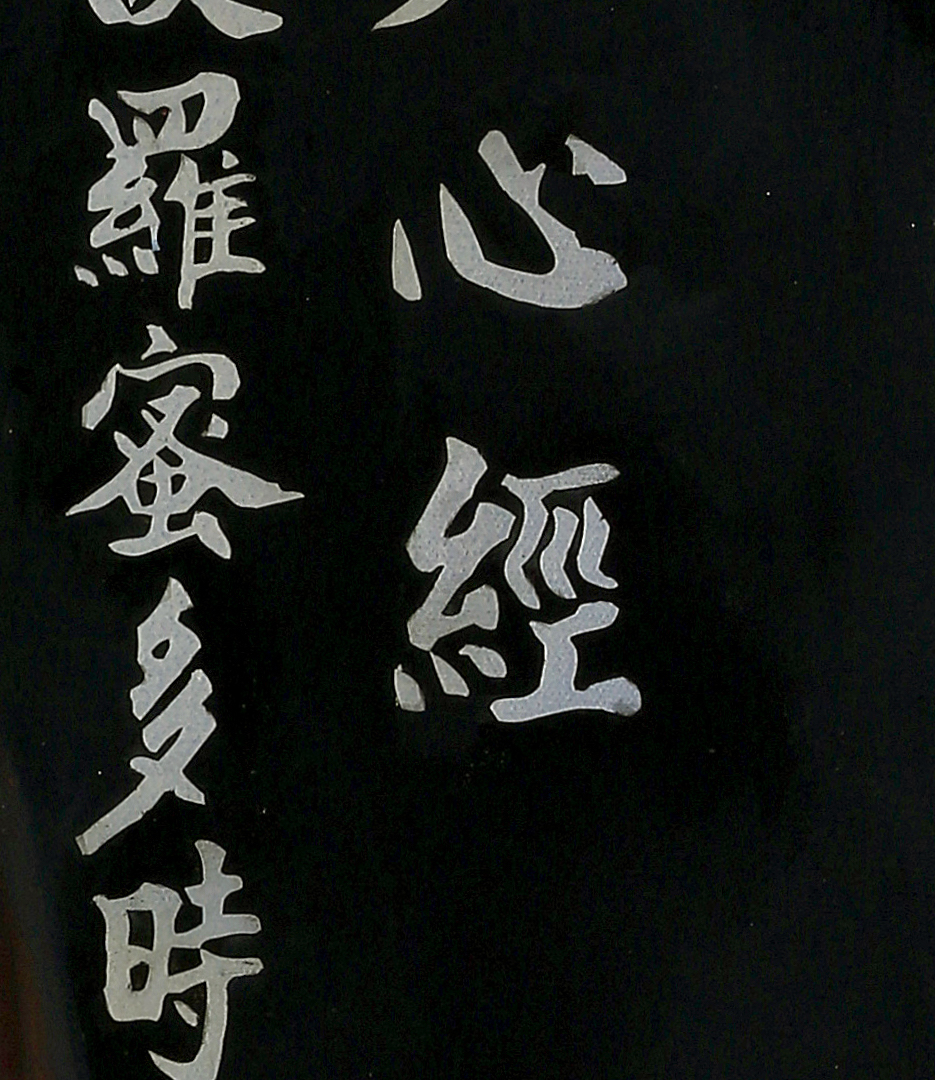 心經
羅蜜多時